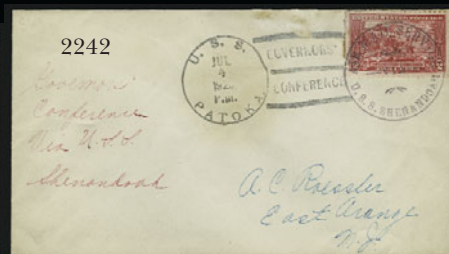 2242
U. S. S.
JUL
4
P.M.
PATOKA
GOVERNORS'
CONFERENCE
U.S.S. SHENANDOAH
Governors'
Conference
Via U.S.S.
Shenandoah
A. C. Roessler
East Orange
N.J.